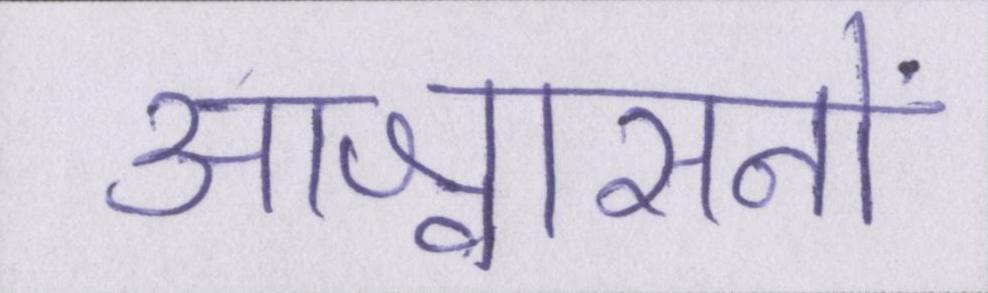 आश्वासनों